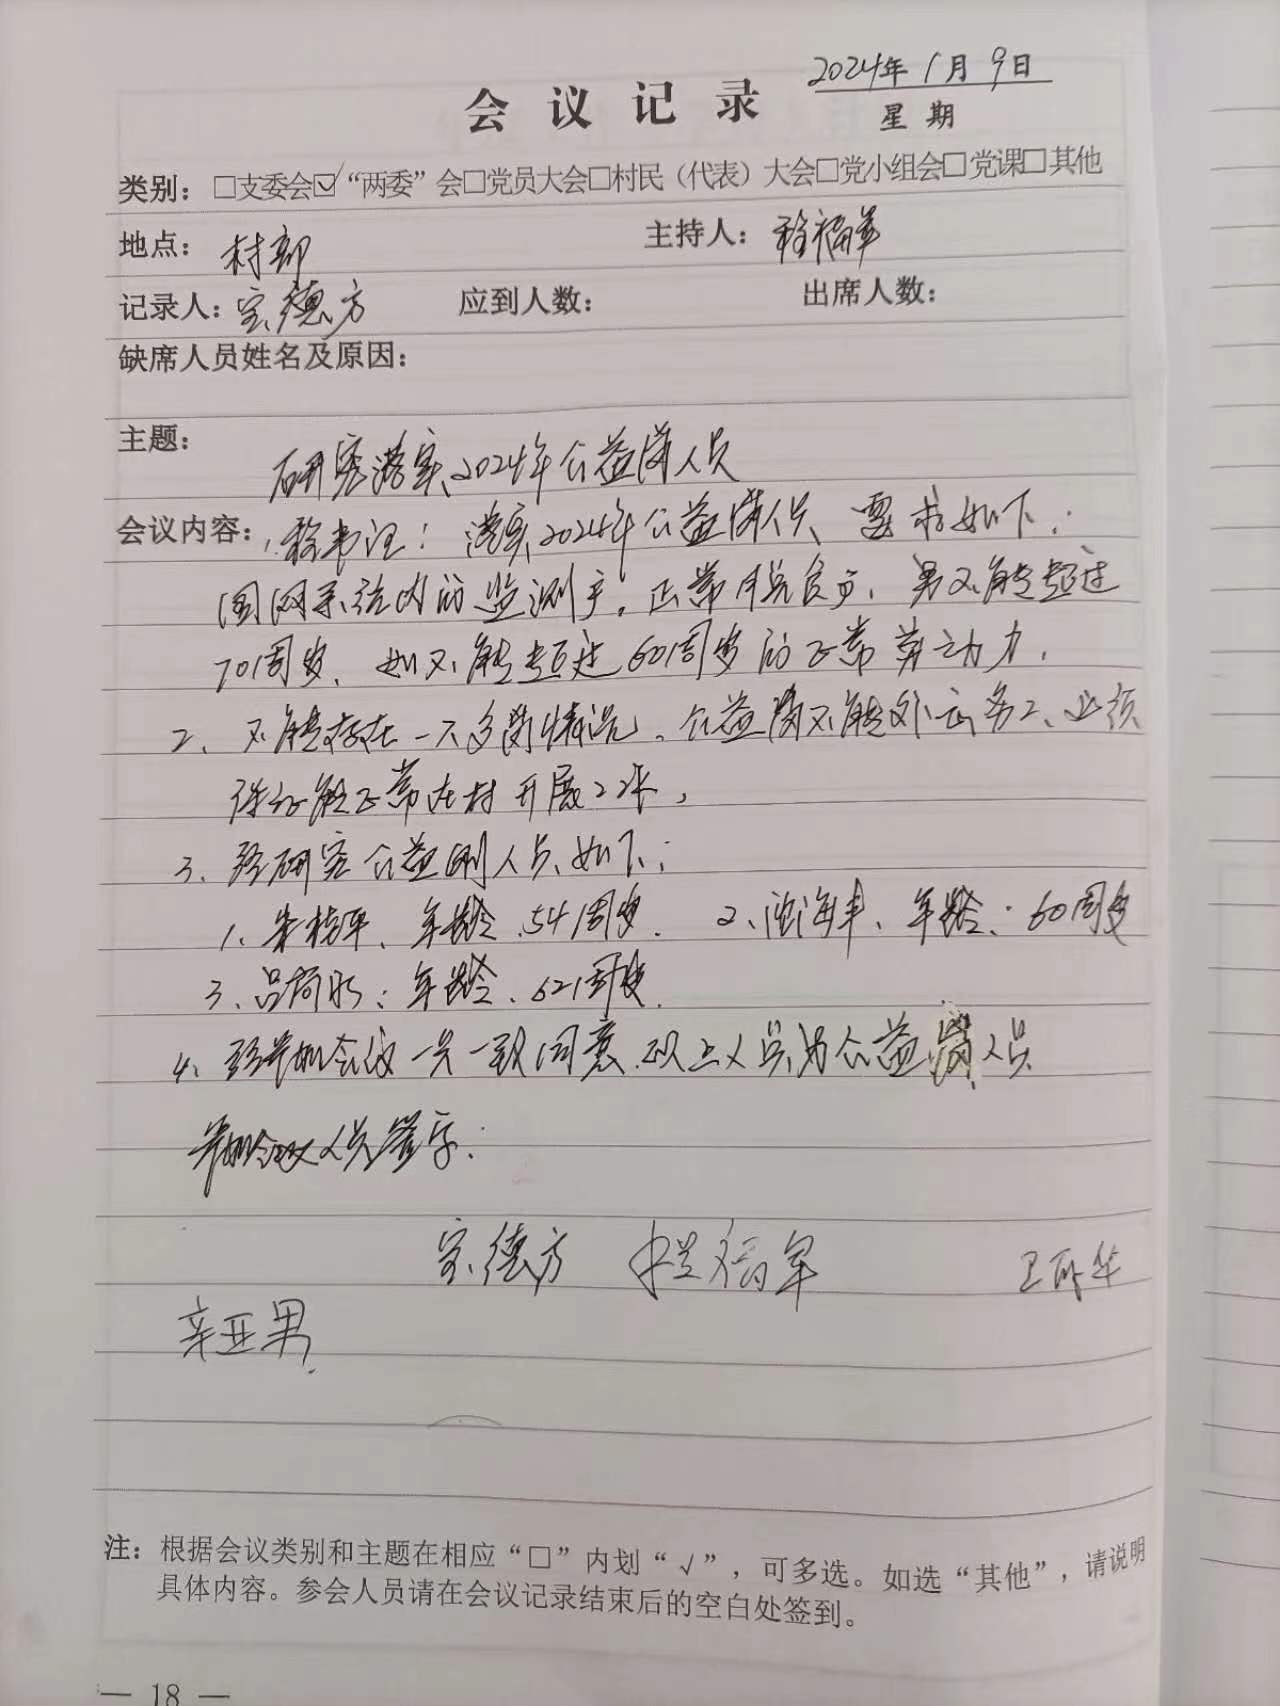 2024年1月9日
会议记录
星期
类别：□支委会☑“两委”会□党员大会□村民（代表）大会□党小组会□党课□其他
地点：村部 主持人：程福军
记录人：宗德方 应到人数： 出席人数：
缺席人员姓名及原因：
主题：
研究落实2024年公益岗人员
会议内容：1、程书记：落实2024年公益岗人员、要求如下：
国网系统内的监测户。正常脱贫户，男不能超过
70周岁、女不能超过60周岁的正常劳动力，
2、不能存在一人多岗情况，公益岗不能外出务工、必须
保证能正常在村开展工作，
3、经研究公益岗人员如下：
1、朱桂平、年龄、54周岁． 2、海丰、年龄：60周岁
3、吕：年龄、62周岁．
4、经参加会议一致同意．以上人员为公益岗人员
参加会议人员签字：
宗德方 程福军 卫华
辛亚男
注：根据会议类别和主题在相应“□”内划“√”，可多选。如选“其他”，请说明
具体内容。参会人员请在会议记录结束后的空白处签到。
— 18 —